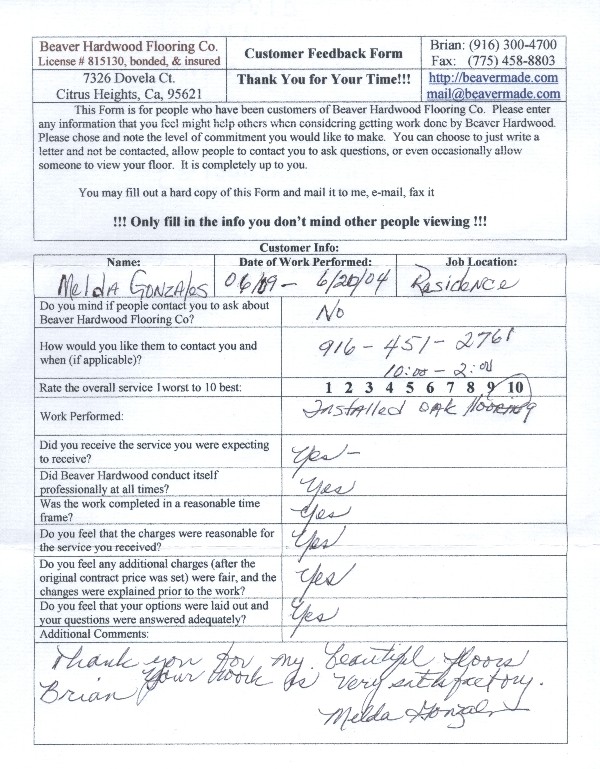 Beaver Hardwood Flooring Co.
License # 815130, bonded, & insured
Customer Feedback Form
Brian: (916) 300-4700
Fax: (775) 458-8803
7326 Dovela Ct.
Citrus Heights, Ca, 95621
Thank You for Your Time!!!
http://beavermade.com
mail@beavermade.com
This Form is for people who have been customers of Beaver Hardwood Flooring Co. Please enter
any information that you feel might help others when considering getting work done by Beaver Hardwood.
Please chose and note the level of commitment you would like to make. You can choose to just write a
letter and not be contacted, allow people to contact you to ask questions, or even occasionally allow
someone to view your floor. It is completely up to you.
You may fill out a hard copy of this Form and mail it to me, e-mail, fax it
!!! Only fill in the info you don't mind other people viewing !!!
Customer Info:
Name:
Date of Work Performed:
Job Location:
Melda Gonzales
06/09 - 6/20/04
Residence
Do you mind if people contact you to ask about
Beaver Hardwood Flooring Co?
No
How would you like them to contact you and
when (if applicable)?
916-451-2761
10:00 - 2:00
Rate the overall service 1worst to 10 best:
1 2 3 4 5 6 7 8 9 10
Work Performed:
Installed oak flooring
Did you receive the service you were expecting
to receive?
Yes -
Did Beaver Hardwood conduct itself
professionally at all times?
Yes
Was the work completed in a reasonable time
frame?
Yes
Do you feel that the charges were reasonable for
the service you received?
Yes
Do you feel any additional charges (after the
original contract price was set) were fair, and the
changes were explained prior to the work?
Yes
Do you feel that your options were laid out and
your questions were answered adequately?
Yes
Additional Comments:
Thank you for my beautiful floors
Brian your work is very satisfactory.
Melda Gonzales